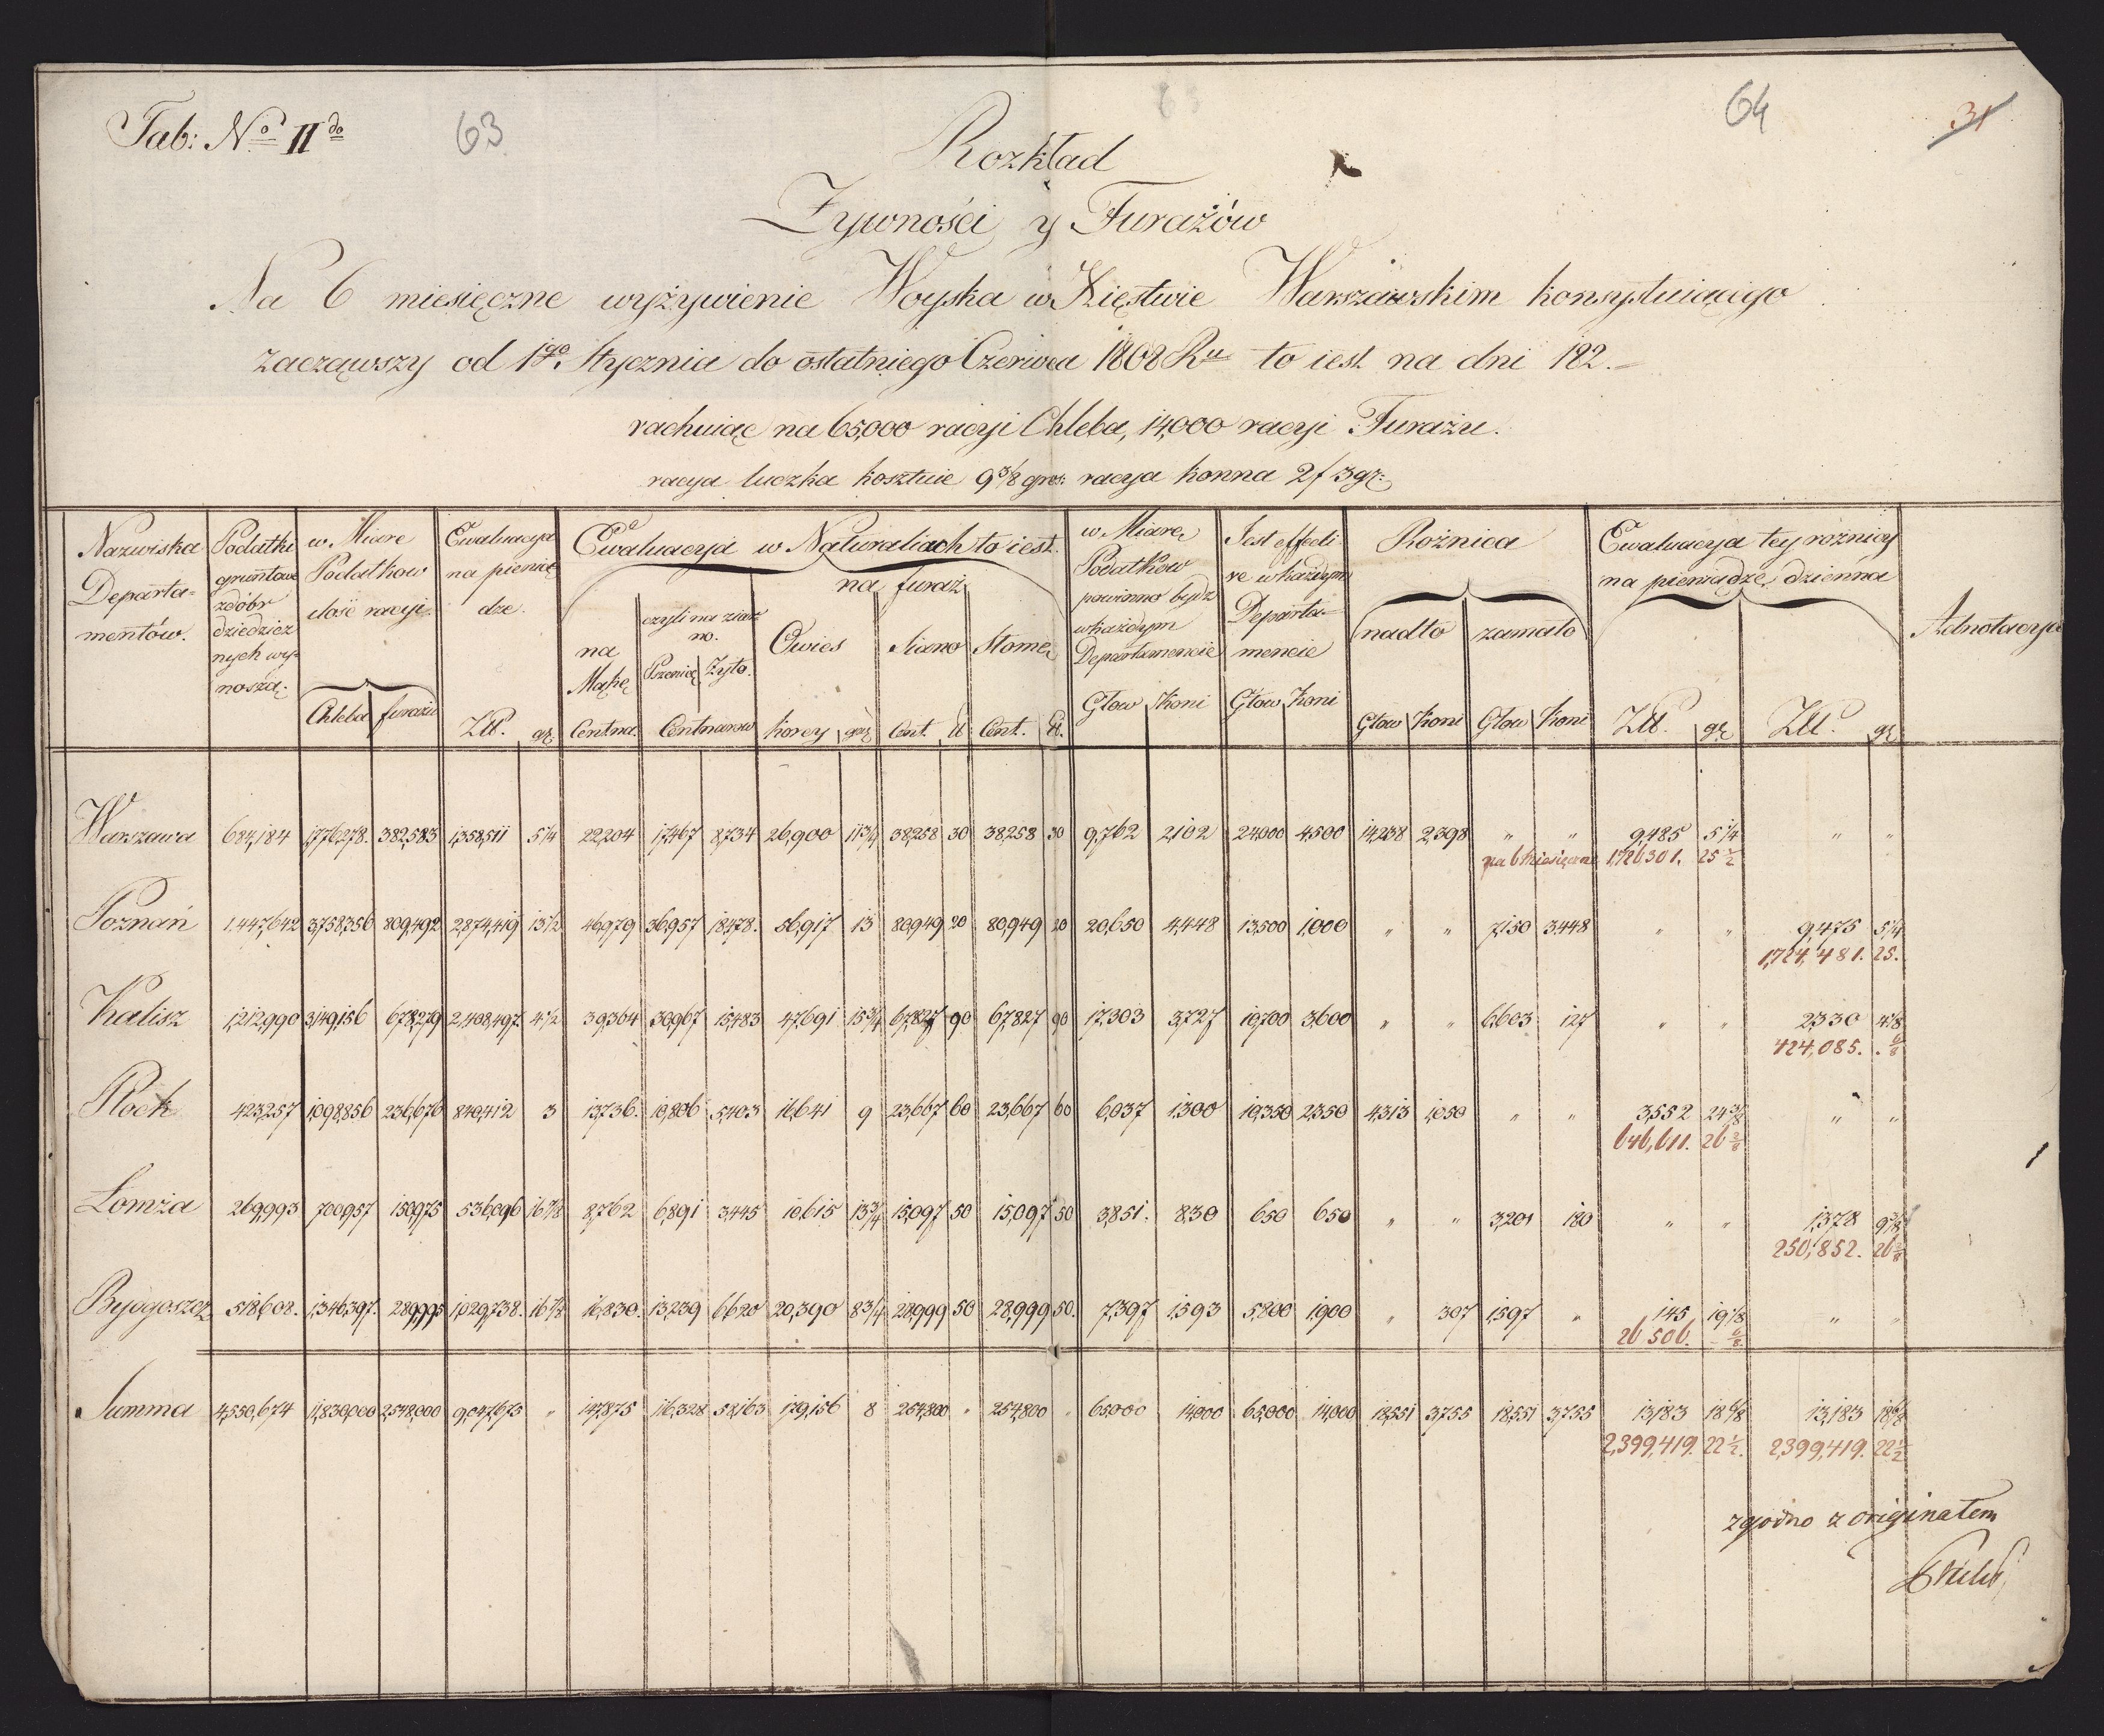 Tab: No IIdo
63
64
31
Rozkład
Zywności y Furażów
Na 6 miesięczne wyżywienie Woyska w Xięstwie Warszawskim konsystuiącego
zacząwszy od 1go Stycznia do ostatniego Czerwca 1808 Ru to iest na dni 182.
rachuiąc na 65,000 racyi Chleba, 14,000 racyi Furażu.
racya ludzka kosztuie 9 3/8 gros: racya konna 2 f 3 gr:
Nazwiska Departa=mentów.
Podatki gruntowe zdóbr dziedzicznych wynoszą.
w Miarę Podatkow ilość racyi.
Chleba furażu
Ewaluacya na pieniądze.
Złł. gr.
Ewaluacya w Naturaliach to iest.
na Mąkę
Centna.
czyli na ziarno.
Pszenicę Żyto.
Centnarow
na furaż
Owies Siano Słomę
korcy gar. Cent. ℔ Cent. ℔.
w Miarę Podatkow powinno bydz wkażdym Departamencie
Głow Koni
Jest effective wkażdym Departa=mencie
Głow Koni
Rożnica
nadto zamało
Głow Koni Głow Koni
Ewaluacya tey rożnicy na pieniądze dzienna
Złł. gr. Złł. gr.
Adnotacya
Warszawa 684,184 1,776,278. 382,583 1,358,511 5 1/4 22,204 17,467 8,734 26,900 11 3/4 38,258 30 38,258 30 9,762 2,102 24,000 4,500 14,238 2,398 " " 9,485 5 1/4 " "
na 6 miesięczne 1,726,301. 25 1/2
Poznań 1,447,642 3,758,356 809,492 2,874,419 13 1/2 46,979 36,957 18,478. 56,917 13 80,949 20 80,949 20 20,650 4,448 13,500 1,000 " " 7,150 3,448 " " 9,475 5 1/4
1,724,481. 25.
Kalisz 1,212,990 3,149,156 678,279 2,408,497. 4 1/2 39,364 30,967 15,483 47,691 15 3/4 67,827 90 67,827 90 17,303 3,727 10,700 3,600 " " 6,603 127 " " 2,330 4 1/8
424,085. . 6/8
Płock 423,257 1,098,856 236,676 840,412 3 13,736. 10,806 5,403 16,641 9 23,667 60 23,667 60 6,037 1,300 10,350 2,350 4,313 1,050 " " 3,552 24 3/8 " "
646,611. 26 2/8
Łomża 269,993 700,957 150,975 536,096 16 7/8 8,762 6,891 3,445 10,615 13 3/4 15,097 50 15,097 50 3,851. 830 650 650 " " 3,201 180 " " 1,378 9 3/8
250,852. 26 2/8
Bydgoszcz 518,608. 1,346,397. 289,995 1,029,738. 16 7/8 16,830. 13,239 6,620 20,390 8 3/4 28,999 50 28,999 50. 7,397 1,593 5,800 1,900 " 307 1,597 " 145 19 1/8 " "
26 506. – 6/8.
Summa 4,550,674 11,830,000 2,548,000 9,047,673 " 147,875 116,328 58,163 179,156 8 254,800 " 254,800 " 65,000 14,000 65,000 14,000 18,551 3,755 18,551 3,755 13,183 18 6/8 13,183 18 6/8
2,399,419. 22 1/2. 2,399,419. 22 1/2
zgodno z originałem